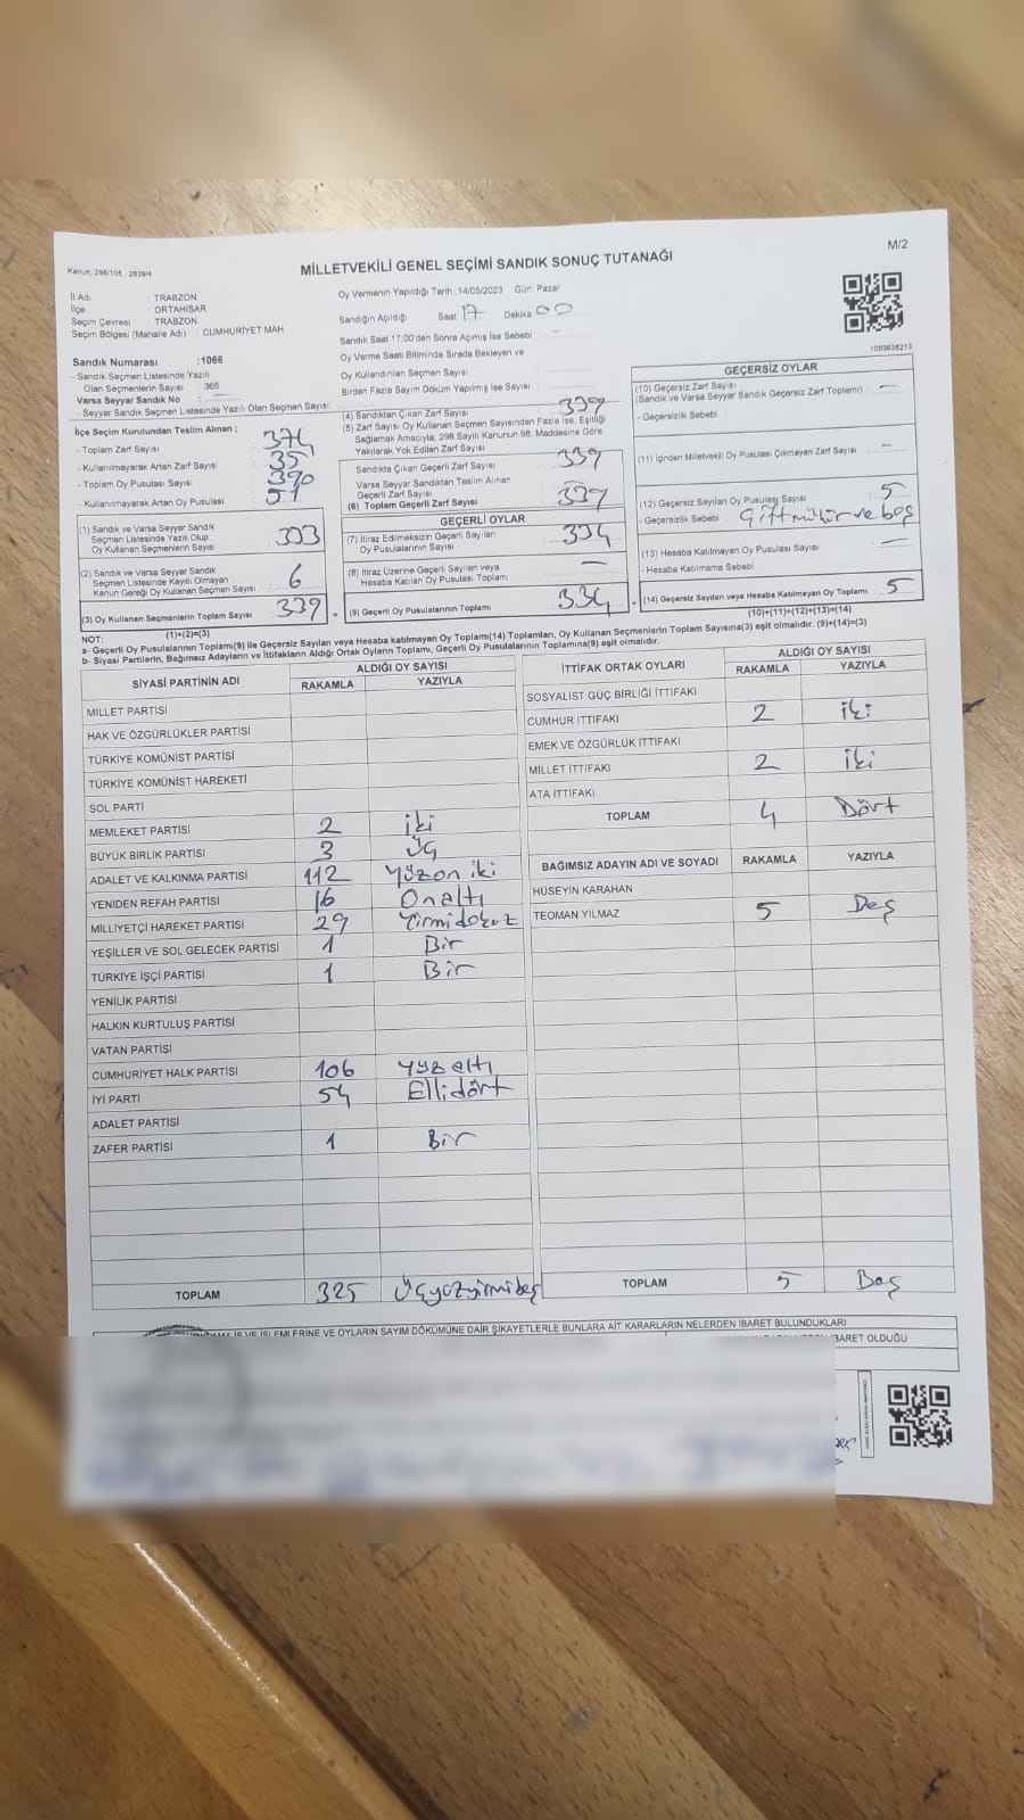 M/2
Kanun: 298/105 - 2839/4
MİLLETVEKİLİ GENEL SEÇİMİ SANDIK SONUÇ TUTANAĞI
İl Adı : TRABZON
İlçe : ORTAHİSAR
Seçim Çevresi : TRABZON
Seçim Bölgesi (Mahalle Adı) : CUMHURİYET MAH
Sandık Numarası : 1066
- Sandık Seçmen Listesinde Yazılı
Olan Seçmenlerin Sayısı : 365
Varsa Seyyar Sandık No :
- Seyyar Sandık Seçmen Listesinde Yazılı Olan Seçmen Sayısı:
Oy Vermenin Yapıldığı Tarih :14/05/2023 Gün: Pazar
Sandığın Açıldığı Saat 17 Dakika 00
Sandık Saat 17:00'den Sonra Açılmış İse Sebebi
Oy Verme Saati Bitiminde Sırada Bekleyen ve
Oy Kullandırılan Seçmen Sayısı
Birden Fazla Sayım Döküm Yapılmış İse Sayısı
İlçe Seçim Kurulundan Teslim Alınan :
- Toplam Zarf Sayısı 374
- Kullanılmayarak Artan Zarf Sayısı 35
- Toplam Oy Pusulası Sayısı 390
- Kullanılmayarak Artan Oy Pusulası 51
(1) Sandık ve Varsa Seyyar Sandık
Seçmen Listesinde Yazılı Olup
Oy Kullanan Seçmenlerin Sayısı 333
(2) Sandık ve Varsa Seyyar Sandık
Seçmen Listesinde Kayıtlı Olmayan
Kanun Gereği Oy Kullanan Seçmen Sayısı 6
(3) Oy Kullanan Seçmenlerin Toplam Sayısı 339
(1)+(2)=(3)
(4) Sandıktan Çıkan Zarf Sayısı 339
(5) Zarf Sayısı Oy Kullanan Seçmen Sayısından Fazla İse, Eşitliği
Sağlamak Amacıyla, 298 Sayılı Kanunun 98. Maddesine Göre
Yakılarak Yok Edilen Zarf Sayısı
Sandıkta Çıkan Geçerli Zarf Sayısı 339
Varsa Seyyar Sandıktan Teslim Alınan
Geçerli Zarf Sayısı
(6) Toplam Geçerli Zarf Sayısı 339
GEÇERLİ OYLAR
(7) İtiraz Edilmeksizin Geçerli Sayılan
Oy Pusulalarının Sayısı 334
(8) İtiraz Üzerine Geçerli Sayılan veya
Hesaba Katılan Oy Pusulası Toplamı —
(9) Geçerli Oy Pusulalarının Toplamı 334
GEÇERSİZ OYLAR
(10) Geçersiz Zarf Sayısı
(Sandık ve Varsa Seyyar Sandık Geçersiz Zarf Toplamı) —
- Geçersizlik Sebebi
(11) İçinden Milletvekili Oy Pusulası Çıkmayan Zarf Sayısı —
(12) Geçersiz Sayılan Oy Pusulası Sayısı 5
- Geçersizlik Sebebi Çift mühür ve boş
(13) Hesaba Katılmayan Oy Pusulası Sayısı —
- Hesaba Katılmama Sebebi
(14) Geçersiz Sayılan veya Hesaba Katılmayan Oy Toplamı 5
(10)+(11)+(12)+(13)=(14)
NOT:
a- Geçerli Oy Pusulalarının Toplamı(9) ile Geçersiz Sayılan veya Hesaba katılmayan Oy Toplamı(14) Toplamları, Oy Kullanan Seçmenlerin Toplam Sayısına(3) eşit olmalıdır. (9)+(14)=(3)
b- Siyasi Partilerin, Bağımsız Adayların ve İttifakların Aldığı Ortak Oyların Toplamı, Geçerli Oy Pusulalarının Toplamına(9) eşit olmalıdır.
SİYASİ PARTİNİN ADI ALDIĞI OY SAYISI
RAKAMLA YAZIYLA
MİLLET PARTİSİ
HAK VE ÖZGÜRLÜKLER PARTİSİ
TÜRKİYE KOMÜNİST PARTİSİ
TÜRKİYE KOMÜNİST HAREKETİ
SOL PARTİ
MEMLEKET PARTİSİ 2 iki
BÜYÜK BİRLİK PARTİSİ 3 Üç
ADALET VE KALKINMA PARTİSİ 112 Yüzon iki
YENİDEN REFAH PARTİSİ 16 Onaltı
MİLLİYETÇİ HAREKET PARTİSİ 29 Yirmidokuz
YEŞİLLER VE SOL GELECEK PARTİSİ 1 Bir
TÜRKİYE İŞÇİ PARTİSİ 1 Bir
YENİLİK PARTİSİ
HALKIN KURTULUŞ PARTİSİ
VATAN PARTİSİ
CUMHURİYET HALK PARTİSİ 106 Yüz altı
İYİ PARTİ 54 Ellidört
ADALET PARTİSİ
ZAFER PARTİSİ 1 Bir
TOPLAM 325 Üçyüzyirmibeş
İTTİFAK ORTAK OYLARI ALDIĞI OY SAYISI
RAKAMLA YAZIYLA
SOSYALİST GÜÇ BİRLİĞİ İTTİFAKI
CUMHUR İTTİFAKI 2 iki
EMEK VE ÖZGÜRLÜK İTTİFAKI
MİLLET İTTİFAKI 2 iki
ATA İTTİFAKI
TOPLAM 4 Dört
BAĞIMSIZ ADAYIN ADI VE SOYADI RAKAMLA YAZIYLA
HÜSEYİN KARAHAN
TEOMAN YILMAZ 5 Beş
TOPLAM 5 Beş
İŞ VE İŞLEMLERİNE VE OYLARIN SAYIM DÖKÜMÜNE DAİR ŞİKAYETLERLE BUNLARA AİT KARARLARIN NELERDEN İBARET BULUNDUKLARI
BARET OLDUĞU